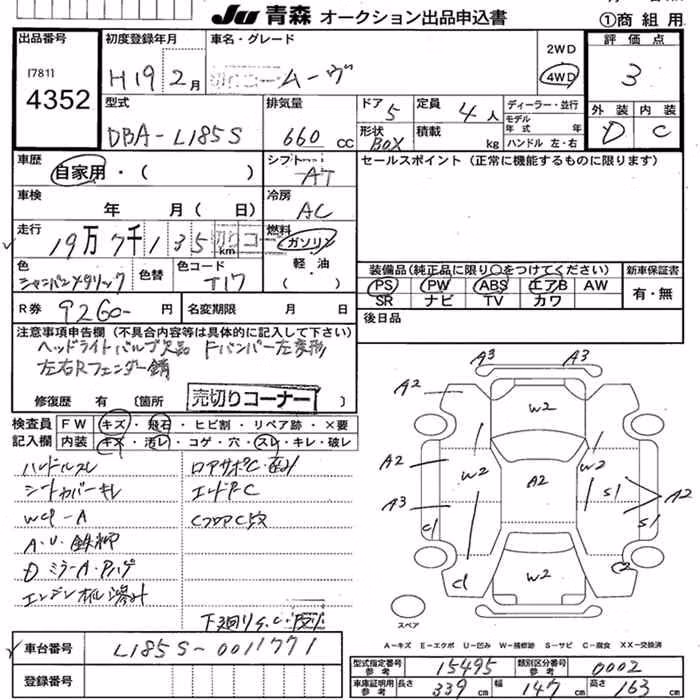 JU 青森 オークション出品申込書
①商組用
出品番号
[781]
4352
初度登録年月
H19 2月
車名・グレード
ムーヴ
2WD
4WD
評価点
3
外装
内装
D
C
型式
DBA-L185S
排気量
660 cc
ドア 5
形状 BOX
定員 4人
積載 kg
ディーラー・並行
モデル年式 年式
ハンドル 左・右
車歴
自家用・( )
シフト
AT
セールスポイント(正常に機能するものに限ります)
車検
年 月( 日)
冷房
AC
走行
19万7千135 km
燃料
ガソリン
軽・油
( )
色
シャンパンメタリック
色替
色コード
T17
R券 9260-円
名変期限 月 日
装備品(純正品に限り○をつけてください)
PS PW ABS エアB AW
SR ナビ TV カワ
新車保証書
有・無
後日品
注意事項申告欄(不具合内容等は具体的に記入して下さい)
ヘッドライトバルブ欠品 Fバンパー左変形
左右Rフェンダー錆
修復歴 有 (箇所
売切りコーナー
検査員記入欄
FW キズ・飛石・ヒビ割・リペア跡・×要
内装 キズ・汚レ・コゲ・穴・スレ・キレ・破レ
ハンドルスレ
シートカバーキレ
A・U・鉄柳
DミラーA・Pハゲ
ロアサポC・凹み
エンドPC
A3 A3
A2 W2
A2 W2 A2 W2 S1
A3 A2
C1 S1
C1 W2 C2
スペア
A-キズ E-エクボ U-凹み W-補修跡 S-サビ C-腐食 XX-交換済
車台番号
L185S-0011771
登録番号
型式指定番号 参考 15495
類別区分番号 参考 0002
車庫証明用 参考 長さ 339 cm 幅 147 cm 高さ 163 cm